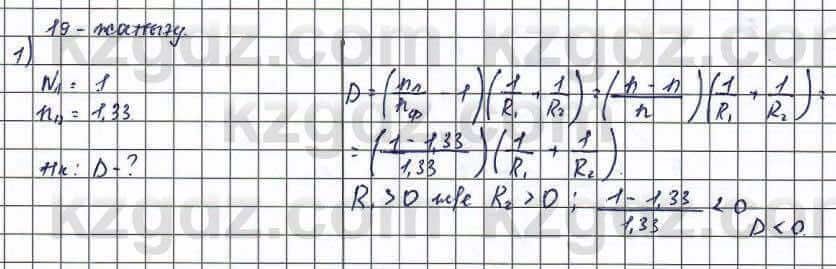 19-жаттығу.
1)
N₁ = 1
n₁₂ = 1,33
Тк: D-?
D = (nл/nф - 1)(1/R₁ + 1/R₂) = (n - n/n)(1/R₁ + 1/R₂) =
= (1 - 1,33/1,33)(1/R₁ + 1/R₂).
R₁ > 0 және R₂ > 0 ; 1 - 1,33/1,33 < 0
D < 0.
kzgdz.com